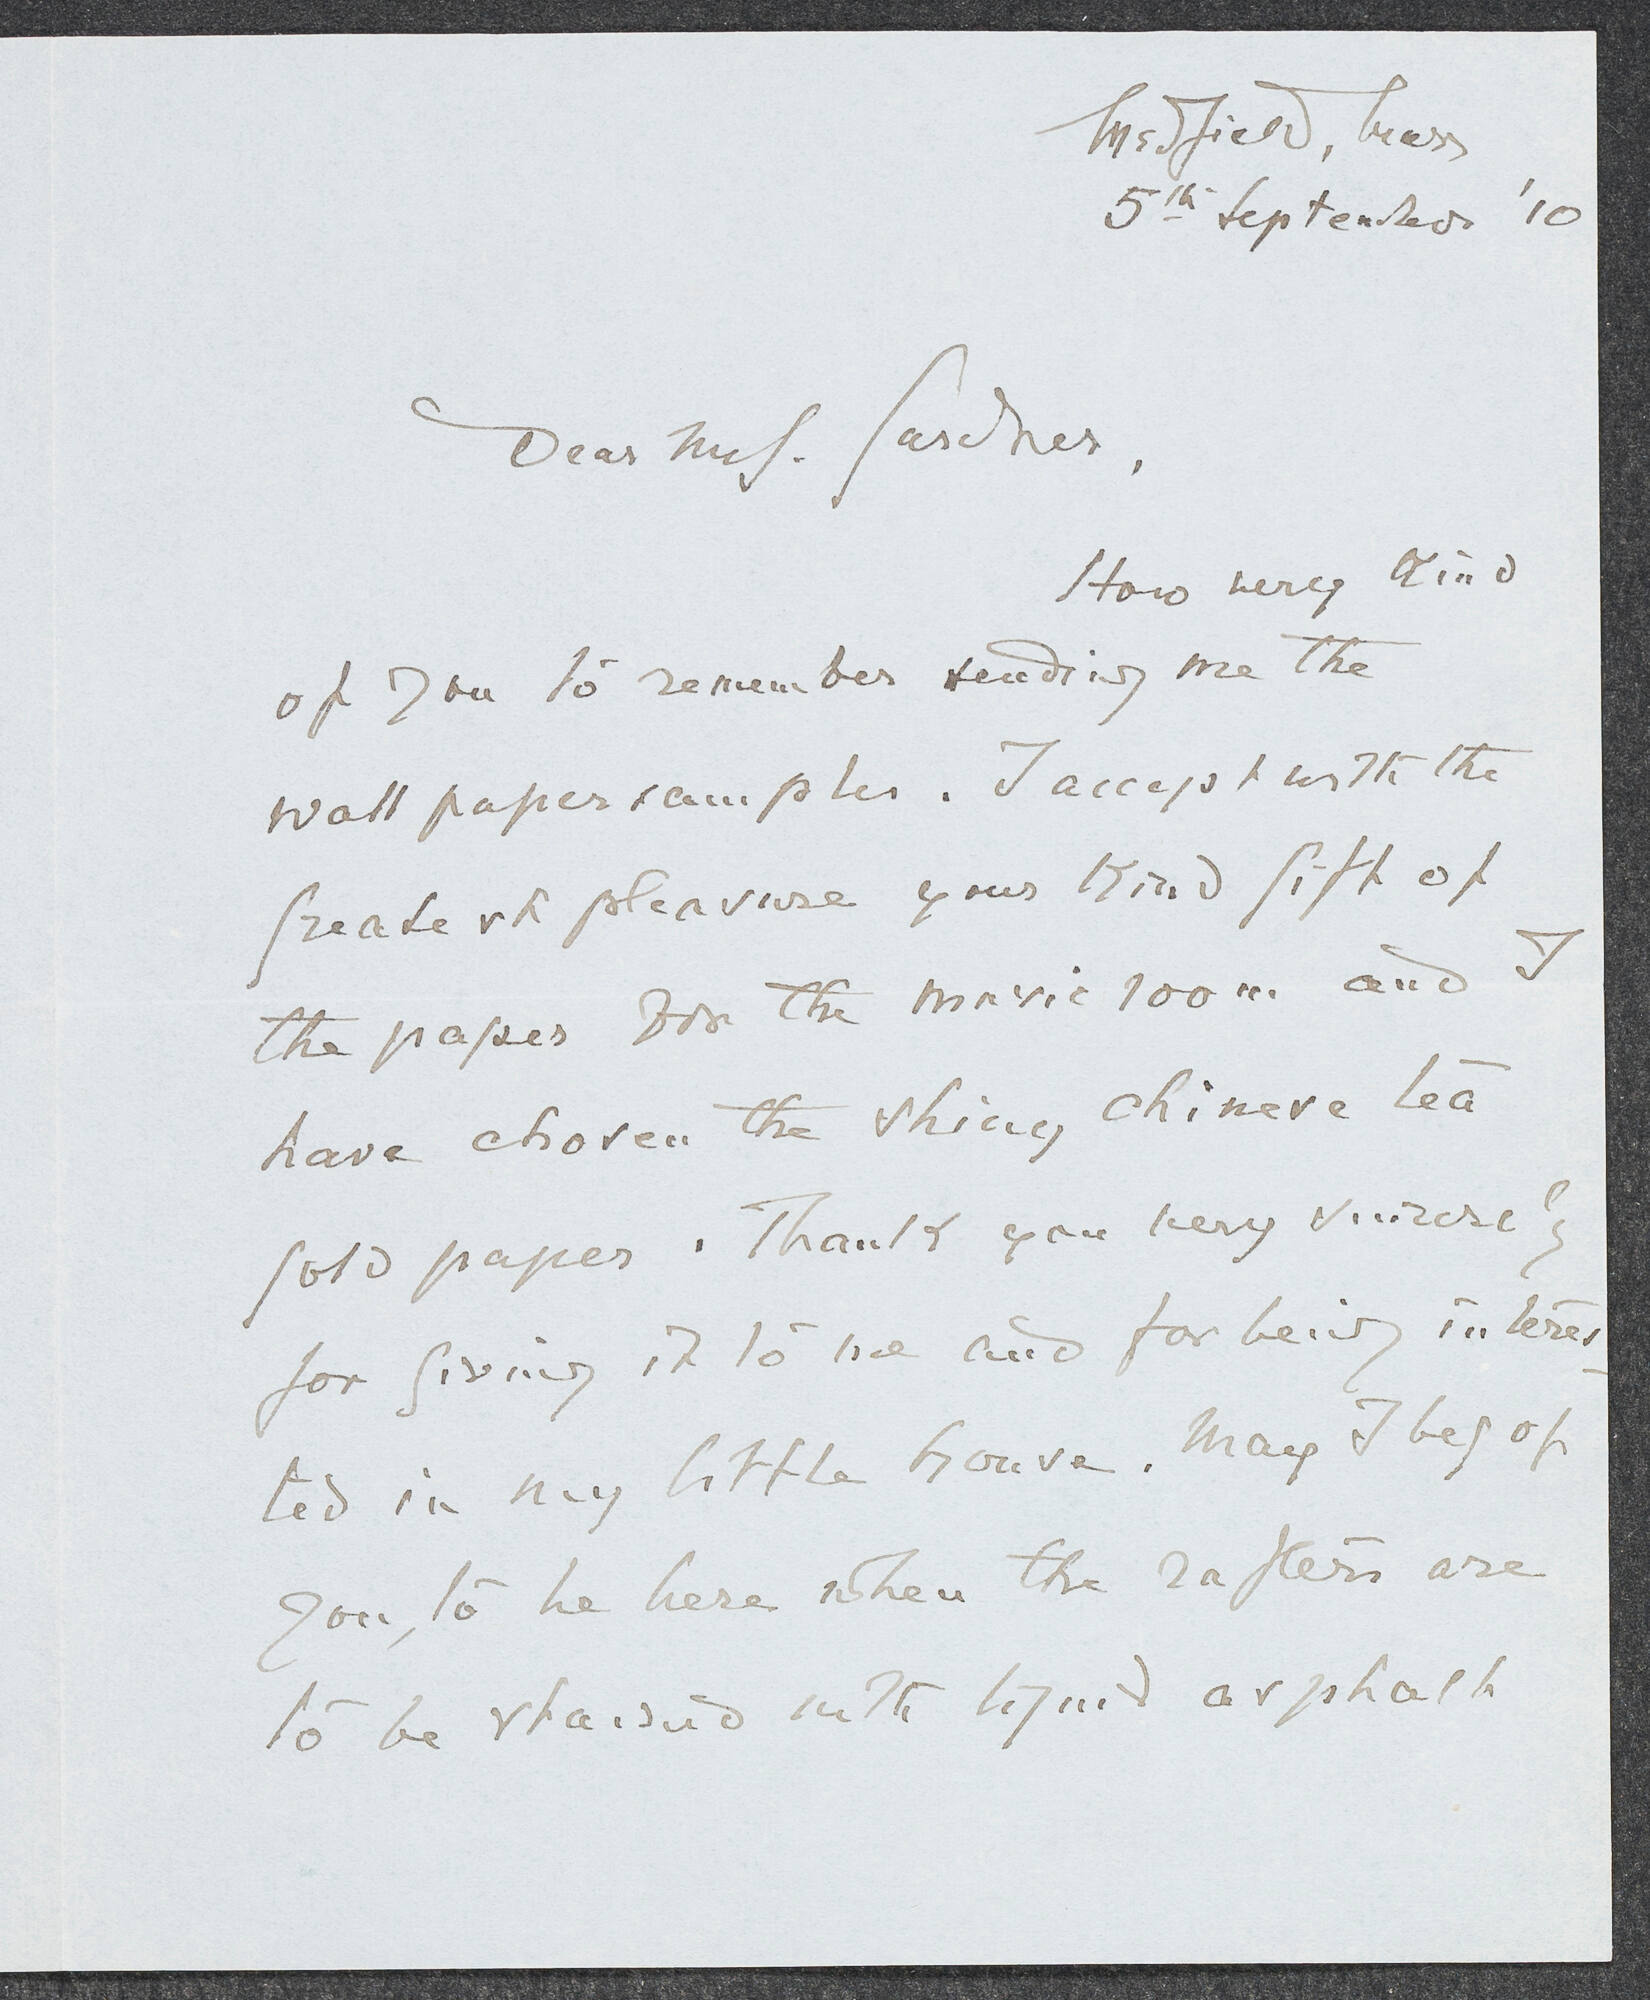 Medfield, Mass
5th September '10
Dear Mrs. Gardner,
How very kind
of you to remember sending me the
wall paper samples. I accept with the
greatest pleasure your kind gift of
the paper for the music room and I
have chosen the shiny chinese tea
gold paper. Thank you very sincerely
for giving it to me and for being interes-
ted in my little house. May I beg of
you, to be here when the rafters are
to be stained with liquid asphalt